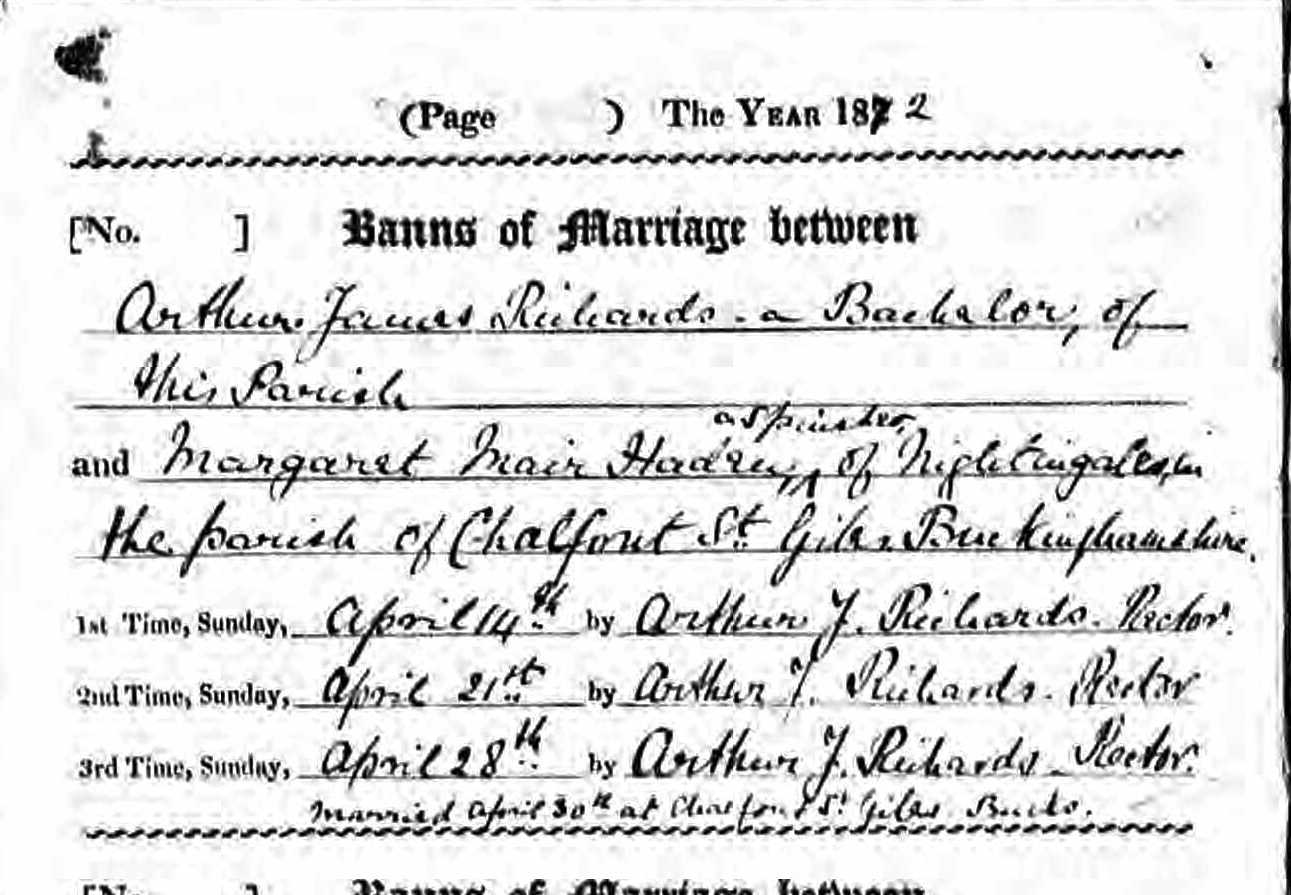 (Page ) The YEAR 1872
[No. ] Banns of Marriage between
Arthur James Richards - a Bachelor, of
this Parish
a Spinster,
and Margaret Mair of Nightingales, in
the parish of Chalfont St. Giles Buckinghamshire.
1st Time, Sunday, April 14th by Arthur J. Richards. Rector.
2nd Time, Sunday, April 21st by Arthur J. Richards. Rector
3rd Time, Sunday, April 28th by Arthur J. Richards. Rector.
Married April 30th at Chalfont St Giles Bucks.
[No. ] Banns of Marriage between